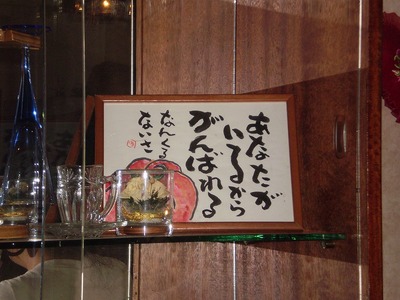 あなたが
いるから
がんばれる
なんくる
ないさ